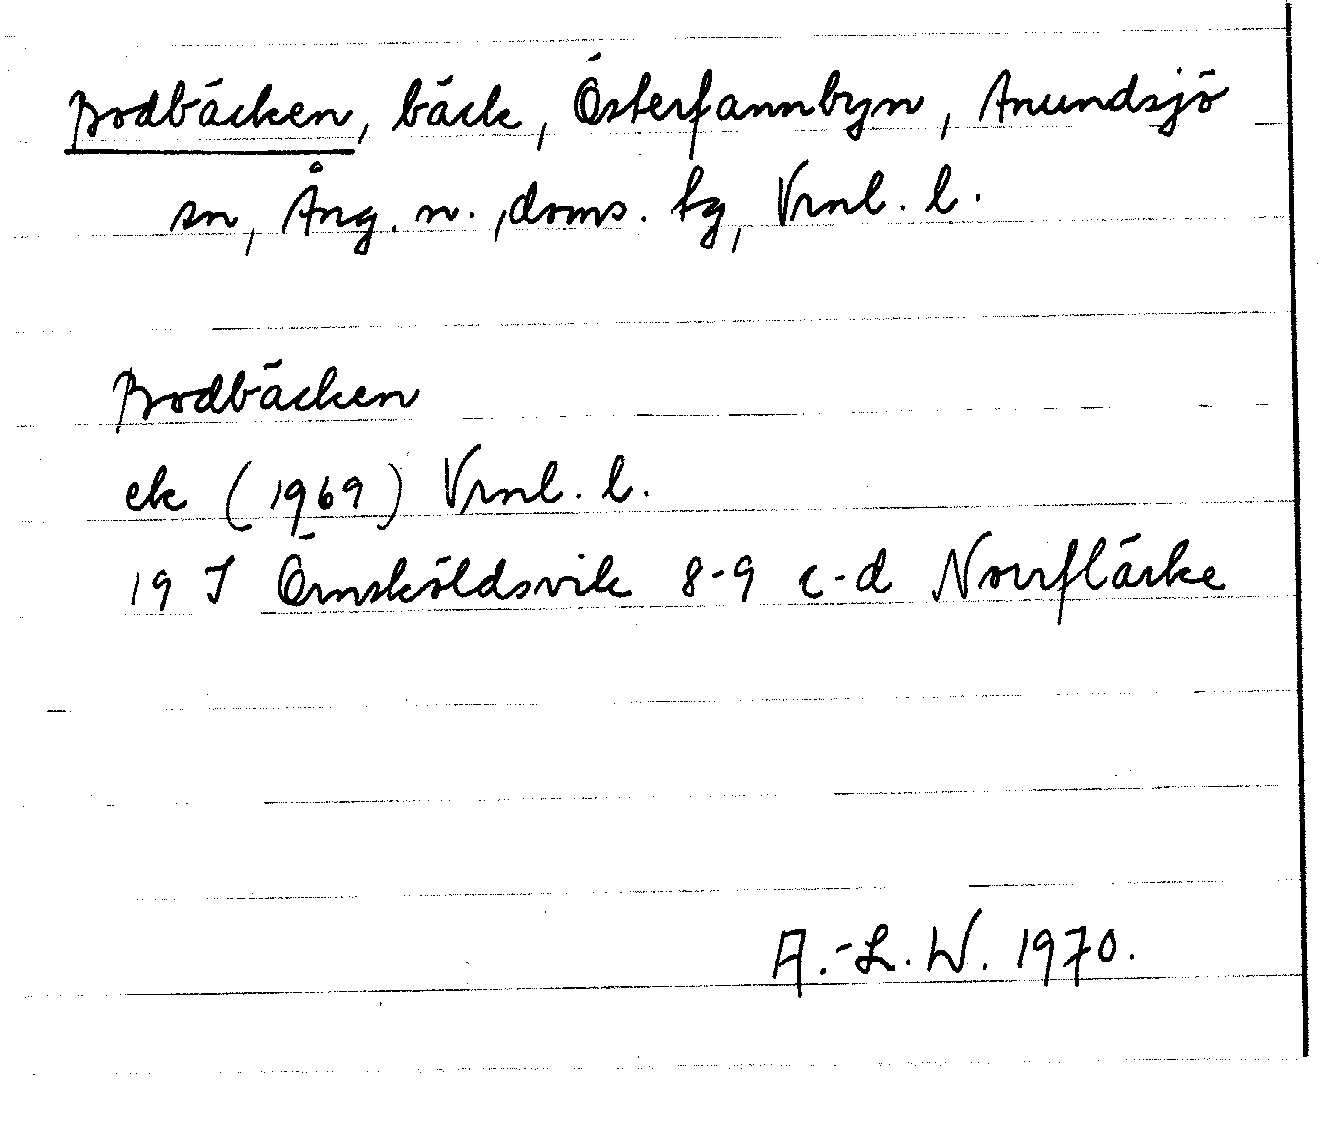 Bodbäcken, bäck, Österfannbyn, Anundsjö
sn, Ång. n. doms. tg, Vrnl. l.
Bodbäcken
ek (1969) Vrnl. l.
19 J Örnsköldsvik 8-9 c-d Norrflärke
A.-L. W. 1970.